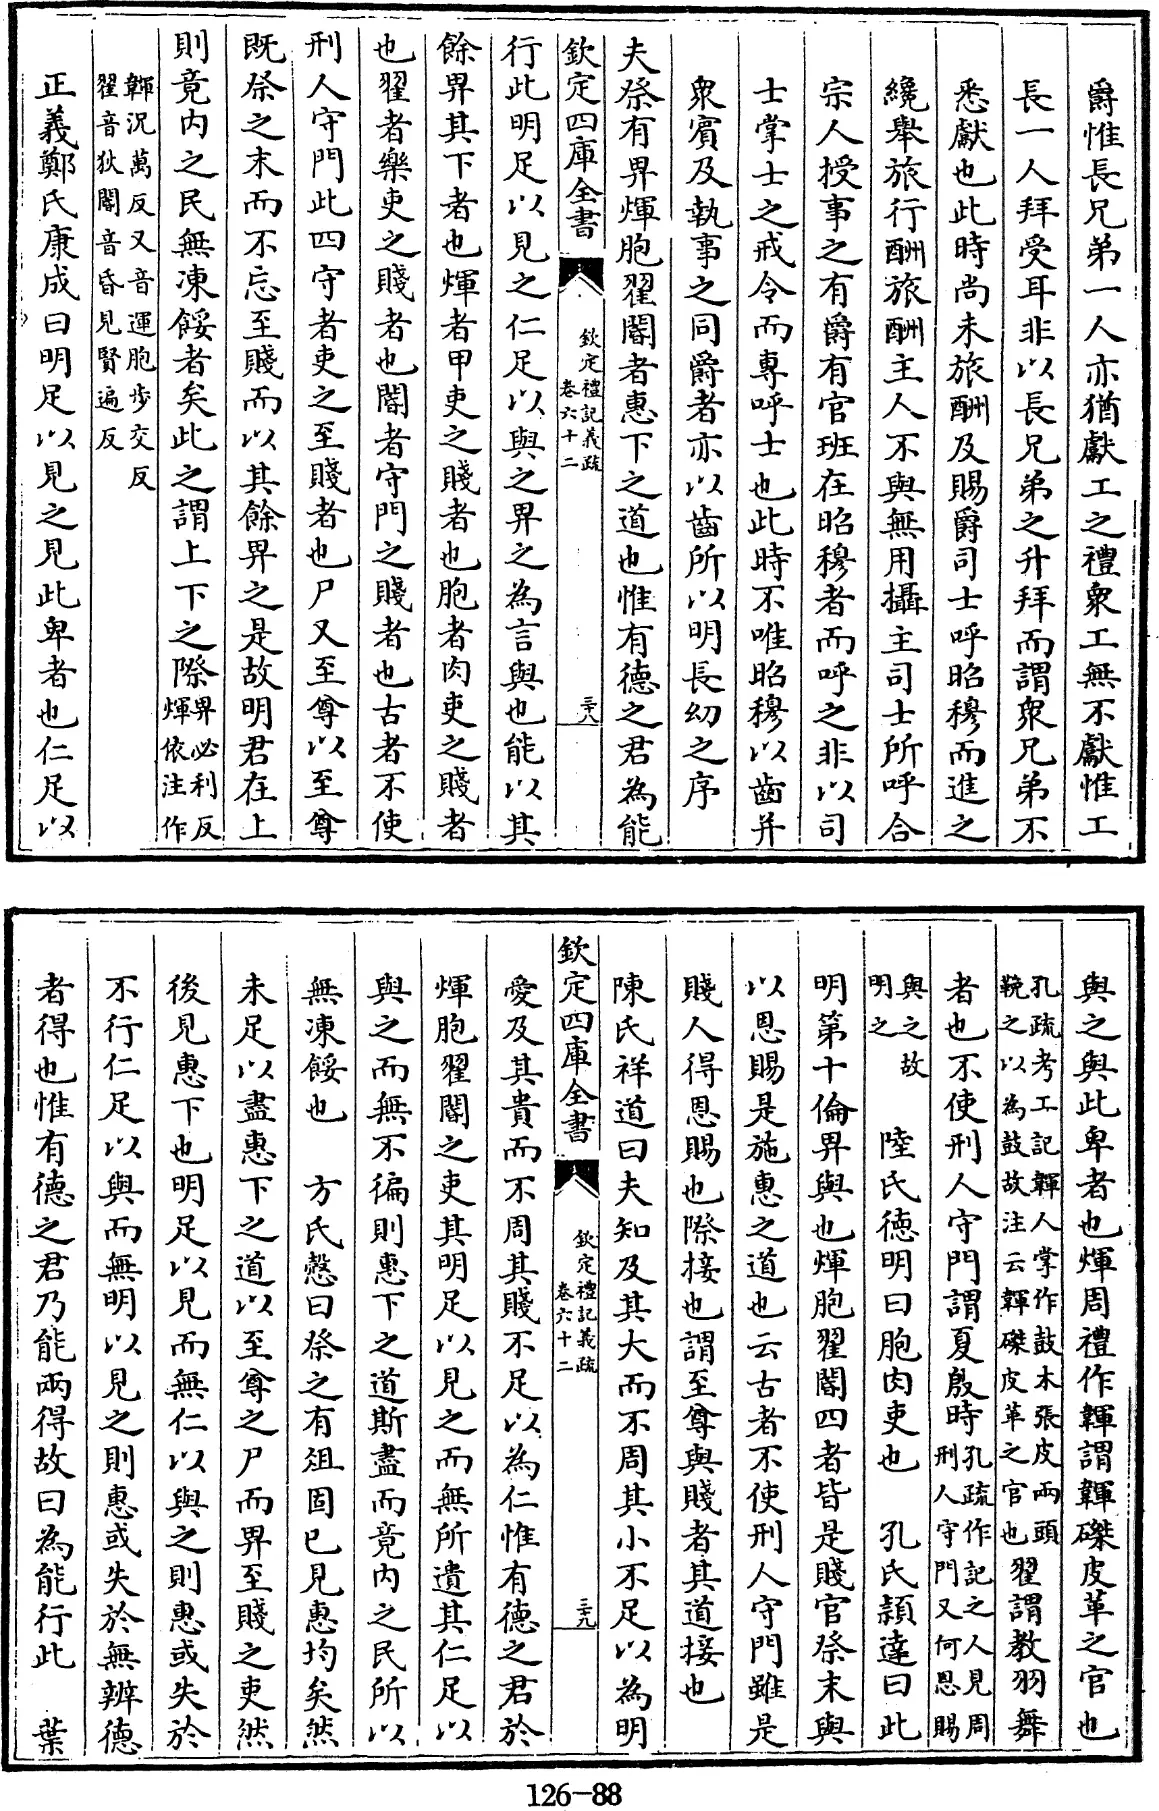 爵惟長兄弟一人亦猶獻工之禮衆工無不獻惟工
長一人拜受耳非以長兄弟之升拜而謂衆兄弟不
悉獻也此時尚未旅酬及賜爵司士呼昭穆而進之
纔舉旅行酬旅酬主人不與無用攝主司士所呼合
宗人授事之有爵有官班在昭穆者而呼之非以司
士掌士之戒令而專呼士也此時不唯昭穆以齒并
衆賓及執事之同爵者亦以齒所以明長幼之序
夫祭有畀煇胞翟閽者惠下之道也惟有德之君為能
欽定四庫全書
欽定禮記義疏
卷六十二
三十八
行此明足以見之仁足以與之畀之為言與也能以其
餘畀其下者也煇者甲吏之賤者也胞者肉吏之賤者
也翟者樂吏之賤者也閽者守門之賤者也古者不使
刑人守門此四守者吏之至賤者也尸又至尊以至尊
既祭之末而不忘至賤而以其餘畀之是故明君在上
則竟内之民無凍餒者矣此之謂上下之際
畀必利反
煇依注作
韗況萬反又音運胞步交反
翟音狄閽音昏見賢遍反
正義鄭氏康成曰明足以見之見此卑者也仁足以
與之與此卑者也煇周禮作韗謂韗磔皮革之官也
孔疏考工記韗人掌作鼓木張皮兩頭
鞔之以為鼓故注云韗磔皮革之官也
翟謂教羽舞
者也不使刑人守門謂夏殷時
孔疏作記之人見周
刑人守門又何恩賜
與之故
明之
陸氏德明曰胞肉吏也　孔氏穎達曰此
明第十倫畀與也煇胞翟閽四者皆是賤官祭末與
以恩賜是施惠之道也云古者不使刑人守門雖是
賤人得恩賜也際接也謂至尊與賤者其道接也
陳氏祥道曰夫知及其大而不周其小不足以為明
欽定四庫全書
欽定禮記義疏
卷六十二
三十九
愛及其貴而不周其賤不足以為仁惟有德之君於
煇胞翟閽之吏其明足以見之而無所遺其仁足以
與之而無不徧則惠下之道斯盡而竟内之民所以
無凍餒也　方氏慤曰祭之有俎固已見惠均矣然
未足以盡惠下之道以至尊之尸而畀至賤之吏然
後見惠下也明足以見而無仁以與之則惠或失於
不行仁足以與而無明以見之則惠或失於無辨德
者得也惟有德之君乃能兩得故曰為能行此　葉
126-88